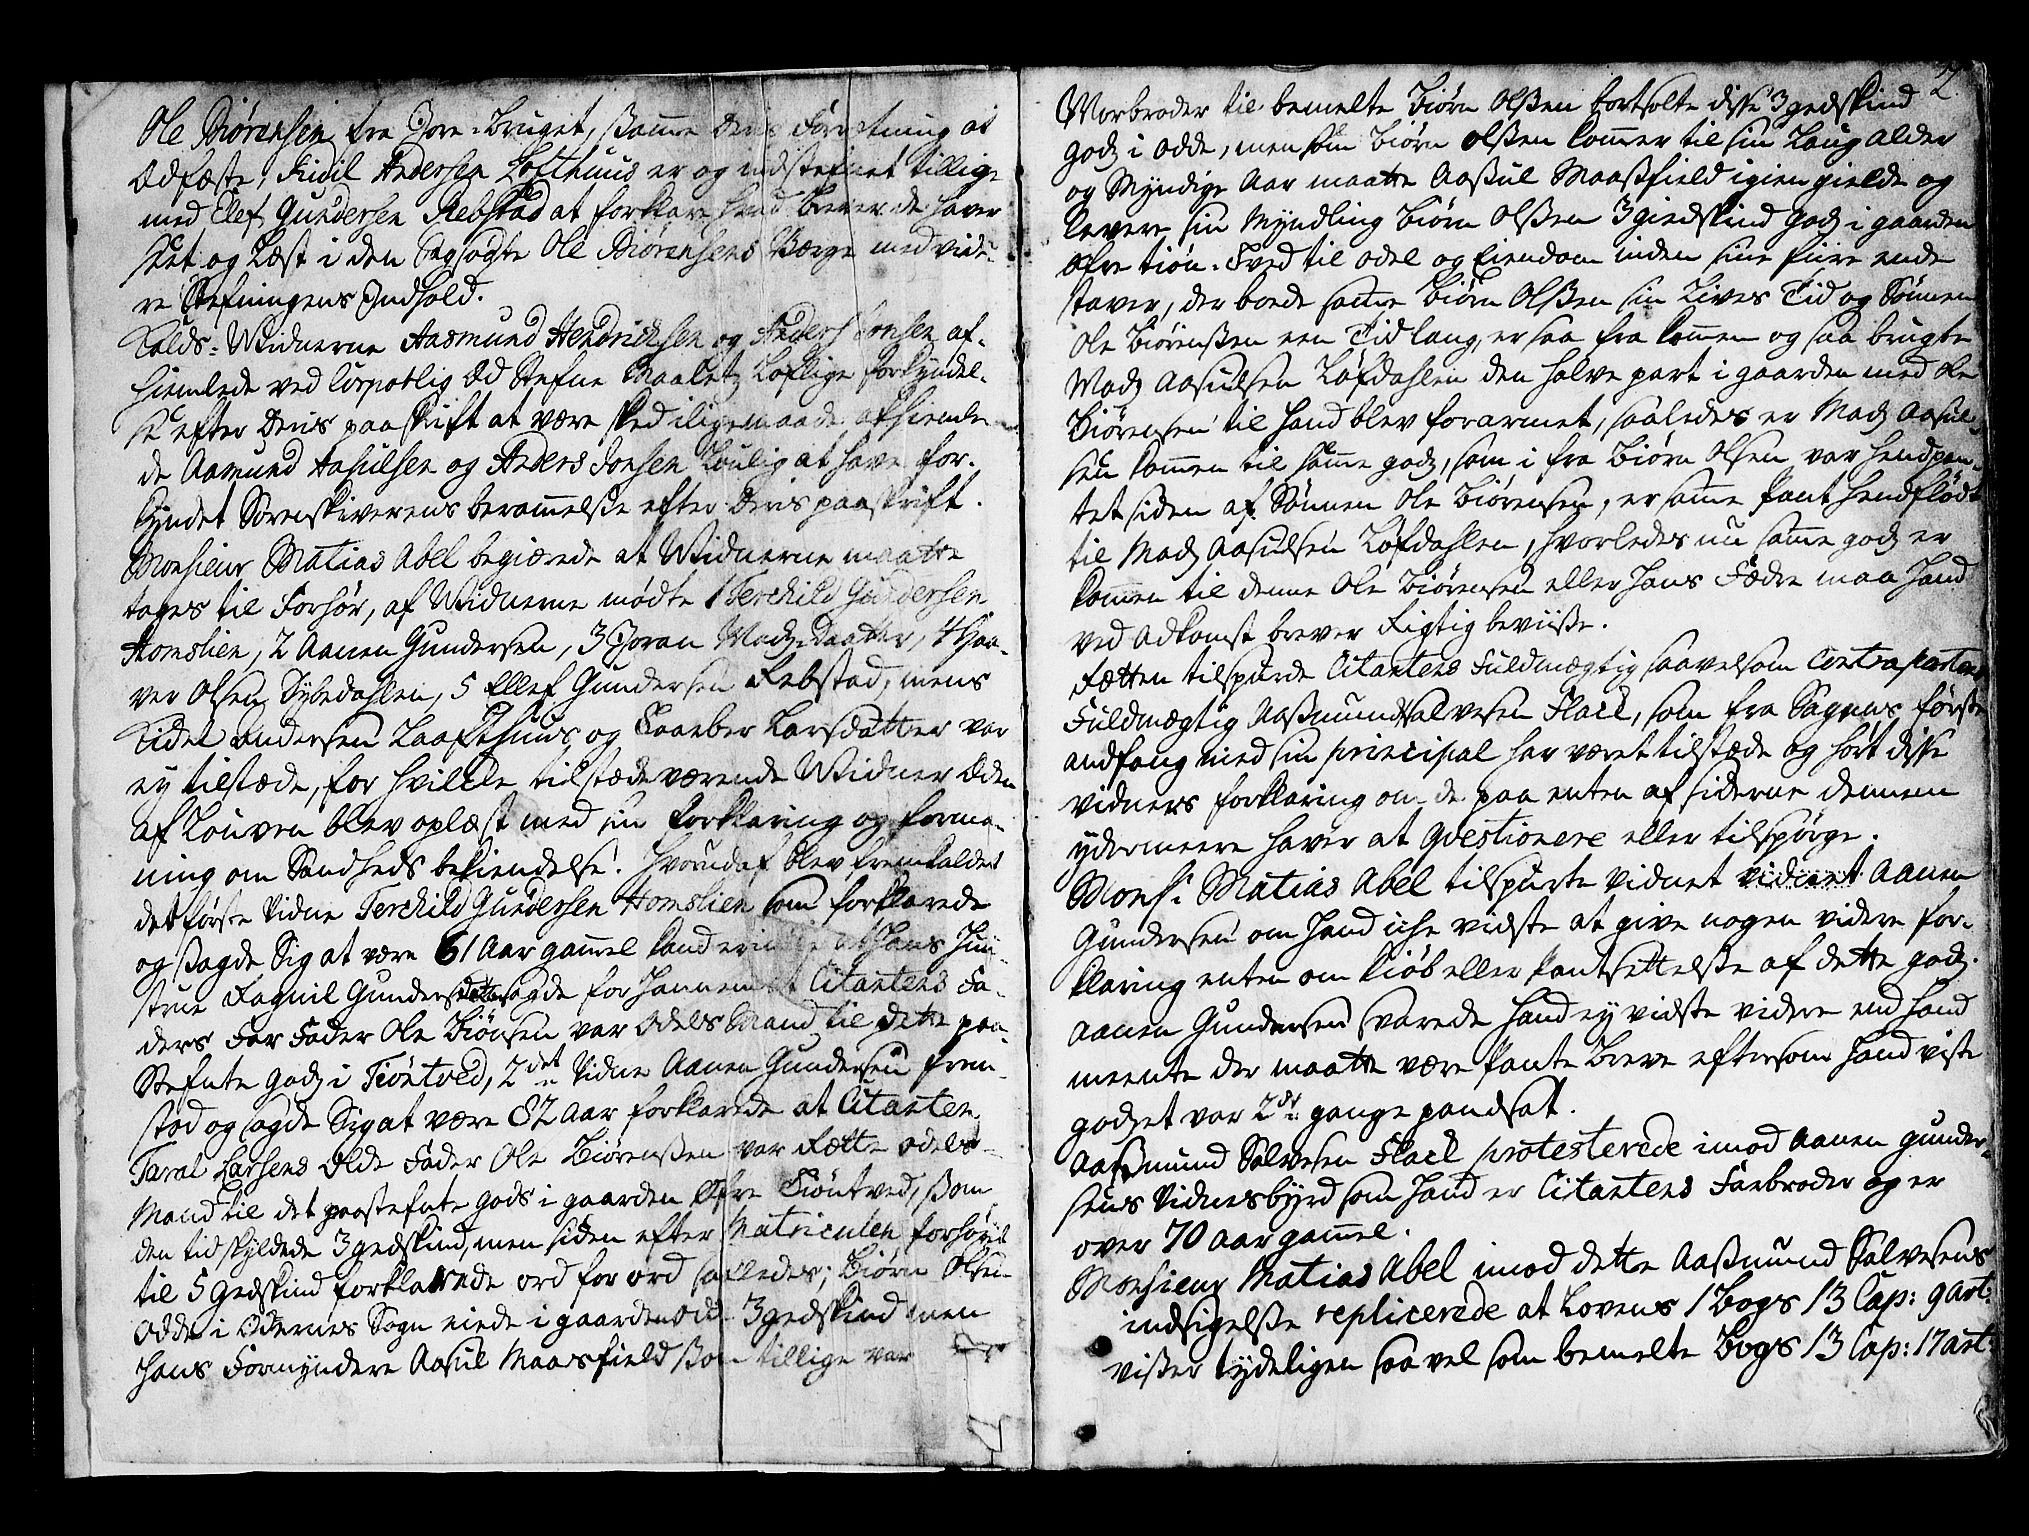 Ole Biørensen fra Jore-bruget, samme Deris Forretning at
Ædfæste, Kidil Andersen Lofthuus er og indstefnet tillige
med Elef Gundersen Rebstad at forklare hvad brever de haver
seet og Læst i den Sagsøgte Ole Biørensens Værge med vide-
re Stefningens Indhold.
Kalds-Widnerne Aasmund Hendrichsen og Anders Jonsen af-
hiemlede ved Corporlig Æd Stefne Maalets Loflige forkyndel-
se efter Deris paaskrift at være sked iligemaade afhiemle-
de Aamund Aasulsen og Anders Jonsen Loulig at have for-
kyndet Sorenskriverens berammelse efter Deris paaskrift.
Monsieur Matias Abel begiærede at Widnerne maatte
tages til Forhør, af Widnerne mødte 1 Terchild Gundersen
Homslien, 2 Aanen Gundersen, 3 Joran Mads Daatter, 4 Haa-
ver Olsen Sybedahlen, 5 Ellef Gundersen Rebstad, mens
Kidel Andersen Laafthuus og Taarber Larsdatter var
ey tilstæde, for hvilke tilstædeværende Widner Æden
af Louven blev oplæst med sin forklaring og forma-
ning om Sandheds bekiendelse. Hvorudaf blev fremkaldet
det første Vidne Terchild Gundersen Homslien som forklarede
og sagde Sig at være 61 Aar gammel kand erindre at hans Huu-
strue Ragnil Gundersdatter sagde for hannem at Citantens Fa-
ders Far Fader Ole Biønsen var Odels Mand til dette paa-
Stefnte gods i Tiøntved, 2det Vidne Aanen Gundersen frem-
stod og sagde Sig at være 82 aar forklarede at Citanten
Taral Larsens Olde Fader Ole Biørenssen var Rette odels-
Mand til det paastefnte gods i gaarden Øfre Tiøntved, som
den tid skyldede 3 gedskind, men siden efter Matriculen forhøyet
til 5 Gedskind forklarede ord for ord saaledes; Biørn Olsen
Odde i Odernes Sogn eiede i gaarden Odde 3 gedskind men
hans Formyndere Aasul Maasfield som tillige var
2
Morbroder til bemelte Biørn Olssen bortsolte disse 3 gedskind
gods i Odde, men som Biørn olssen kommer til sin Laug alder
og Myndige Aar maatte Aassul Maassfield igien gielde og
levere sin Myndling Biørn Olssen 3 giedskind gods i gaarden
øfre tiøn-Tved til odel og Eiendom inden sine fiire ende
staver, der boede samme Biørn Olssen sin Lives Tid og Sønnen
Ole Biørenssen een Tid lang, er saa fra kommen og saa brugte
Mads Aasulsen Løfdahlen den halve part i gaarden med Ole
Biørensen til hand blev forarmet, saaledes er Mads Aasul-
sen kommen til samme gods, som i fra Biørn Olsen var hendpan-
tet siden af Sønnen Ole Biørensen, er samme Pant hendflødt
til Mads Aasulsen Løfdahlen, hvorledes nu samme gods er
kommen til denne Ole Biørensen eller hans Fædre maa hand
ved Adkomst brever Rigtig beviisse.
Rætten tilspurde Citantens Fuldmægtig saavelsom Contrapartens
Fuldmægtig Aassmund Salvesen Flack, som fra Sagens første
andfang med sin principal har været tilstæde og hørt disse
vidners forklaring om de paa enten af siderne dennem
ydermeere haver at qvestionere eller tilspørge.
Mons: Matias Abel tilspurte vidnet vidnet Aanen
Gundersen om hand iche vidste at give nogen videre for-
klaring enten om kiøb eller Pantsettelsse af dette gods.
Aanen Gundersen svarede hand ey vidste videre end hand
meente der maatte være Pante Breve eftersom hand viste
godset var 2de gange pandsat.
Aassmund Salvesen Flack protesterede imod Aanen gunder-
sens Vidnesbyrd som hand er Citantens Farbroder og er
over 70 aar gammel.
Monsieur Matias Abel imod dette Aassmund Salvesens
indsigelsse replicerede at Lovens 1 Bogs 13 Cap: 9 art:
visser tydeligen saa vel som bemelte Bogs 13 Cap: 17 art: